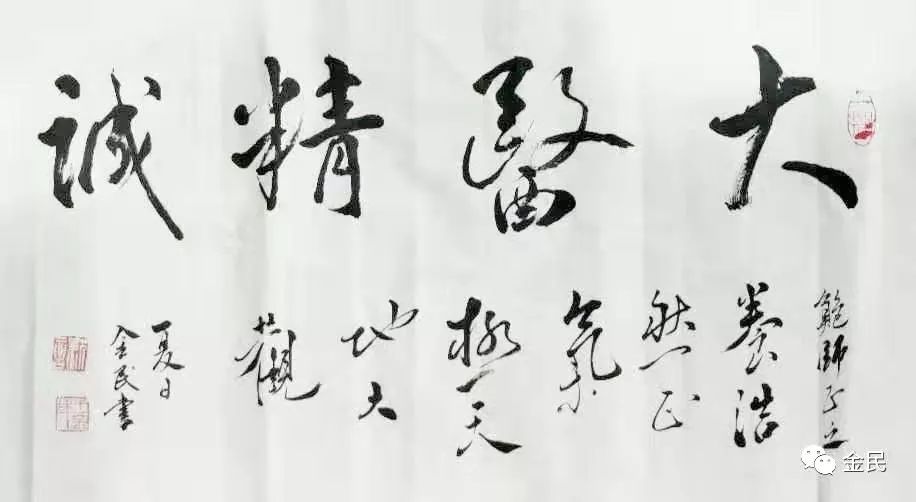 大醫精誠
師正之
養浩
然正
氣
極天
地大
觀
夏日
金民書
金民